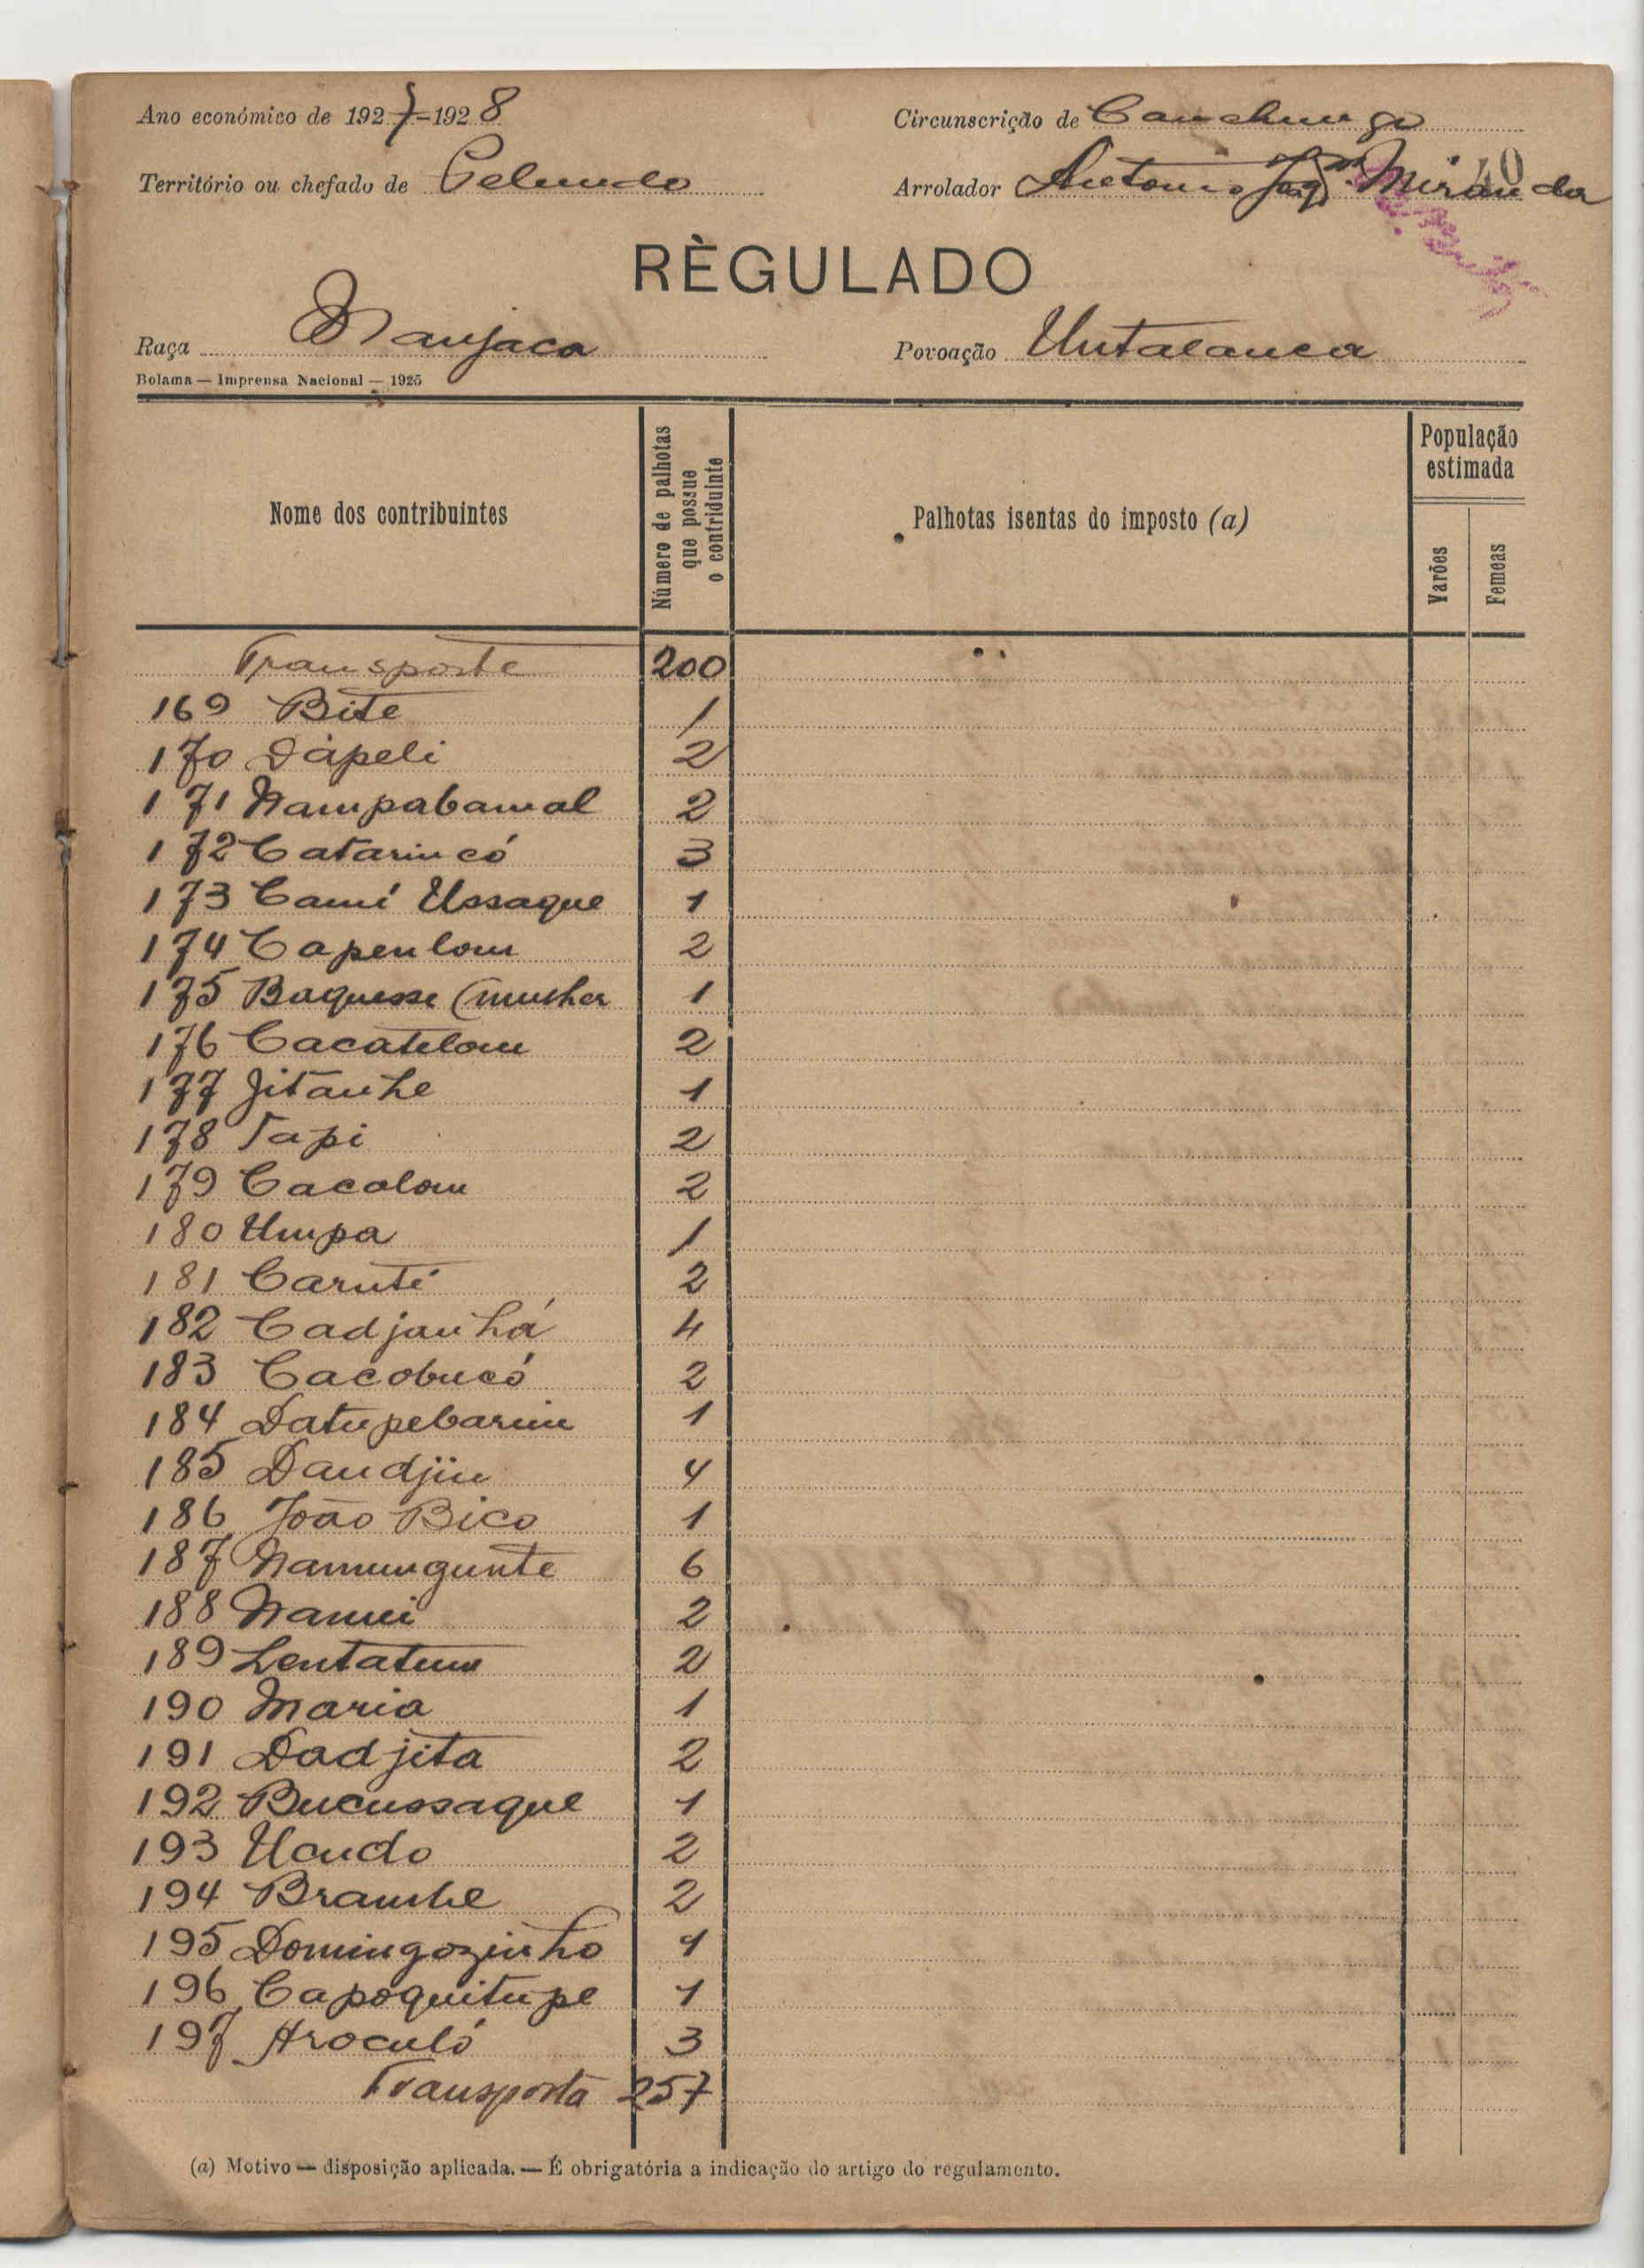 Ano económico de 1927-1928
Circunscrição de Canchungo
40
Território ou chefado de Pelundo
Arrolador Antonio Joaqm Miranda
RÈGULADO
Raça Manjaca
Povoação Untacanca
Bolama — Imprensa Nacional — 1925
Nome dos contribuintes
Número de palhotas que possue o contriduinte
Palhotas isentas do imposto (a)
População estimada
Varões
Femeas
Transporte 200
169 Bite 1
170 Dápeli 2
171 Nampabamal 2
172 Catarincó 3
173 Camí Ussaque 1
174 Capenlom 2
175 Baquesse (mulher 1
176 Cacatelom 2
177 Jitanhe 1
178 Tapi 2
179 Cacalom 2
180 Umpa 1
181 Caruté 2
182 Cadjanhá 4
183 Cacobucó 2
184 Datupebarim 1
185 Dandjin 4
186 João Bico 1
187 Namungunte 6
188 Namui 2
189 Lentatum 2
190 Maria 1
191 Dadjita 2
192 Bucussaque 1
193 Uando 2
194 Bramhe 2
195 Domingozinho 1
196 Capoquitupe 1
197 Aroculó 3
Transporta 257
(a) Motivo — disposição aplicada. — É obrigatória a indicação do artigo do regulamento.